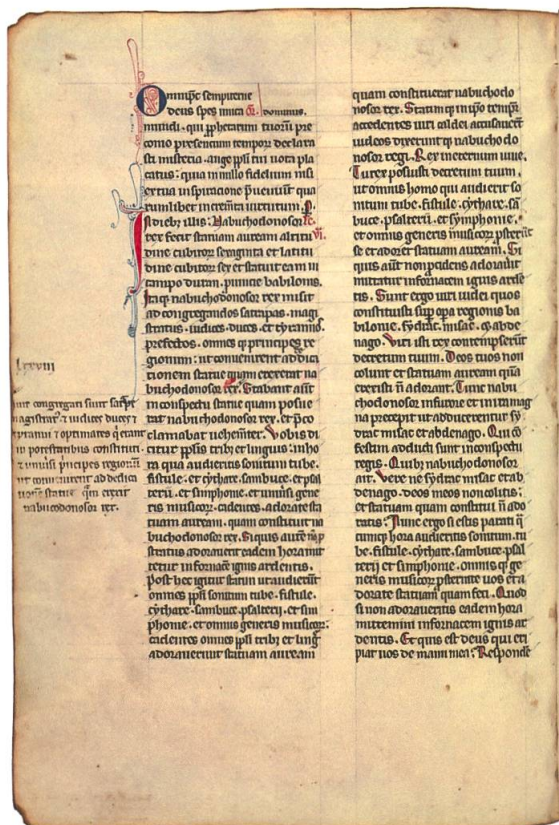 Omnipc sempiterne
deus spes unica or. dominus.
mundi. qui pphetarum tuorum pre
conio presencium temporum declara
sti misteria. auge ppli tui uota pla
catus. quia in nullo fidelium nisi
ex tua inspiracione pueniunt qua
rumlibet incrementa uirtutum.
diebus illis: Nabuchodonosor
rex fecit statuam auream altitu
dine cubitorum sexaginta et latitu
dine cubitorum sex et statuit eam in
campo duran. puincie babilonis.
Itaq nabuchodonosor rex misit
ad congregandos satrapas. magi
stratus. iudices. duces. et tyrannos.
prefectos. omnes q principes re
gionum: ut conuenirent ad dedica
tionem statue quam erexerat na
buchodonosor rex. Stabant aut
in conspectu statue quam posue
rat nabuchodonosor rex. et pco
clamabat uehementer. Vobis di
citur pplis tribubus et linguis: in ho
ra qua audieritis sonitum tube.
fistule. et cythare. sambuce. et psal
terii. et simphonie. et uniusi gene
ris musicorum. cadentes. adorate sta
tuam auream. quam constituit na
buchodonosor rex. Siquis autem non p
stratus adorauerit eadem hora mit
tetur in fornacem ignis ardentis.
Post hec igitur statim ut audierunt
omnes ppli sonitum tube. fistule.
cythare. sambuce. psalterii. et sim
phonie. et omnis generis musicorum:
cadentes omnes ppli tribus et lingue
adorauerunt statuam auream
lxxviii
unt congregati sunt satrape
magistratus et iudices duces et
tyranni et optimates q erant
in potestatibus constituti
et uniusi principes regionum
ut conuenirent ad dedica
tionem statue quam erexit
nabucodonosor rex.
quam constituerat nabuchodo
nosor rex. Statim q in ipso tempore
accedentes uiri caldei accusauerunt
iudeos dixerunt q nabuchodo
nosor regi. Rex in eternum uiue.
Tu rex posuisti decretum tuum.
ut omnis homo qui audierit so
nitum tube. fistule. cythare. sam
buce. psalterii. et symphonie.
et omnis generis musicorum psternat
se et adoret statuam auream. Si
quis aut non pcidens adorauerit
mittatur in fornacem ignis arden
tis. Sunt ergo uiri iudei quos
constituisti sup opa regionis ba
bilonie. sydrac. misac. et abde
nago. Viri isti rex contempserunt
decretum tuum. Deos tuos non
colunt et statuam auream quam
erexisti n adorant. Tunc nabu
chodonosor in furore et in ira mag
na precepit ut adducerentur sy
drac misac et abdenago. Qui confestim
adducti sunt in conspectu
regis. Quibus nabuchodonosor
ait. Vere ne sydrac misac et ab
denago. deos meos non colitis:
et statuam quam constitui n ado
ratis: Nunc ergo si estis parati q
cumq hora audieritis sonitum. tu
be. fistule. cythare. sambuce. psal
terii et simphonie. omnis q ge
neris musicorum psternite uos et a
dorate statuam quam feci. Quod
si non adoraueritis eadem hora
mittemini in fornacem ignis ar
dentis. Et quis est deus qui eri
piat uos de manu mea: Responde